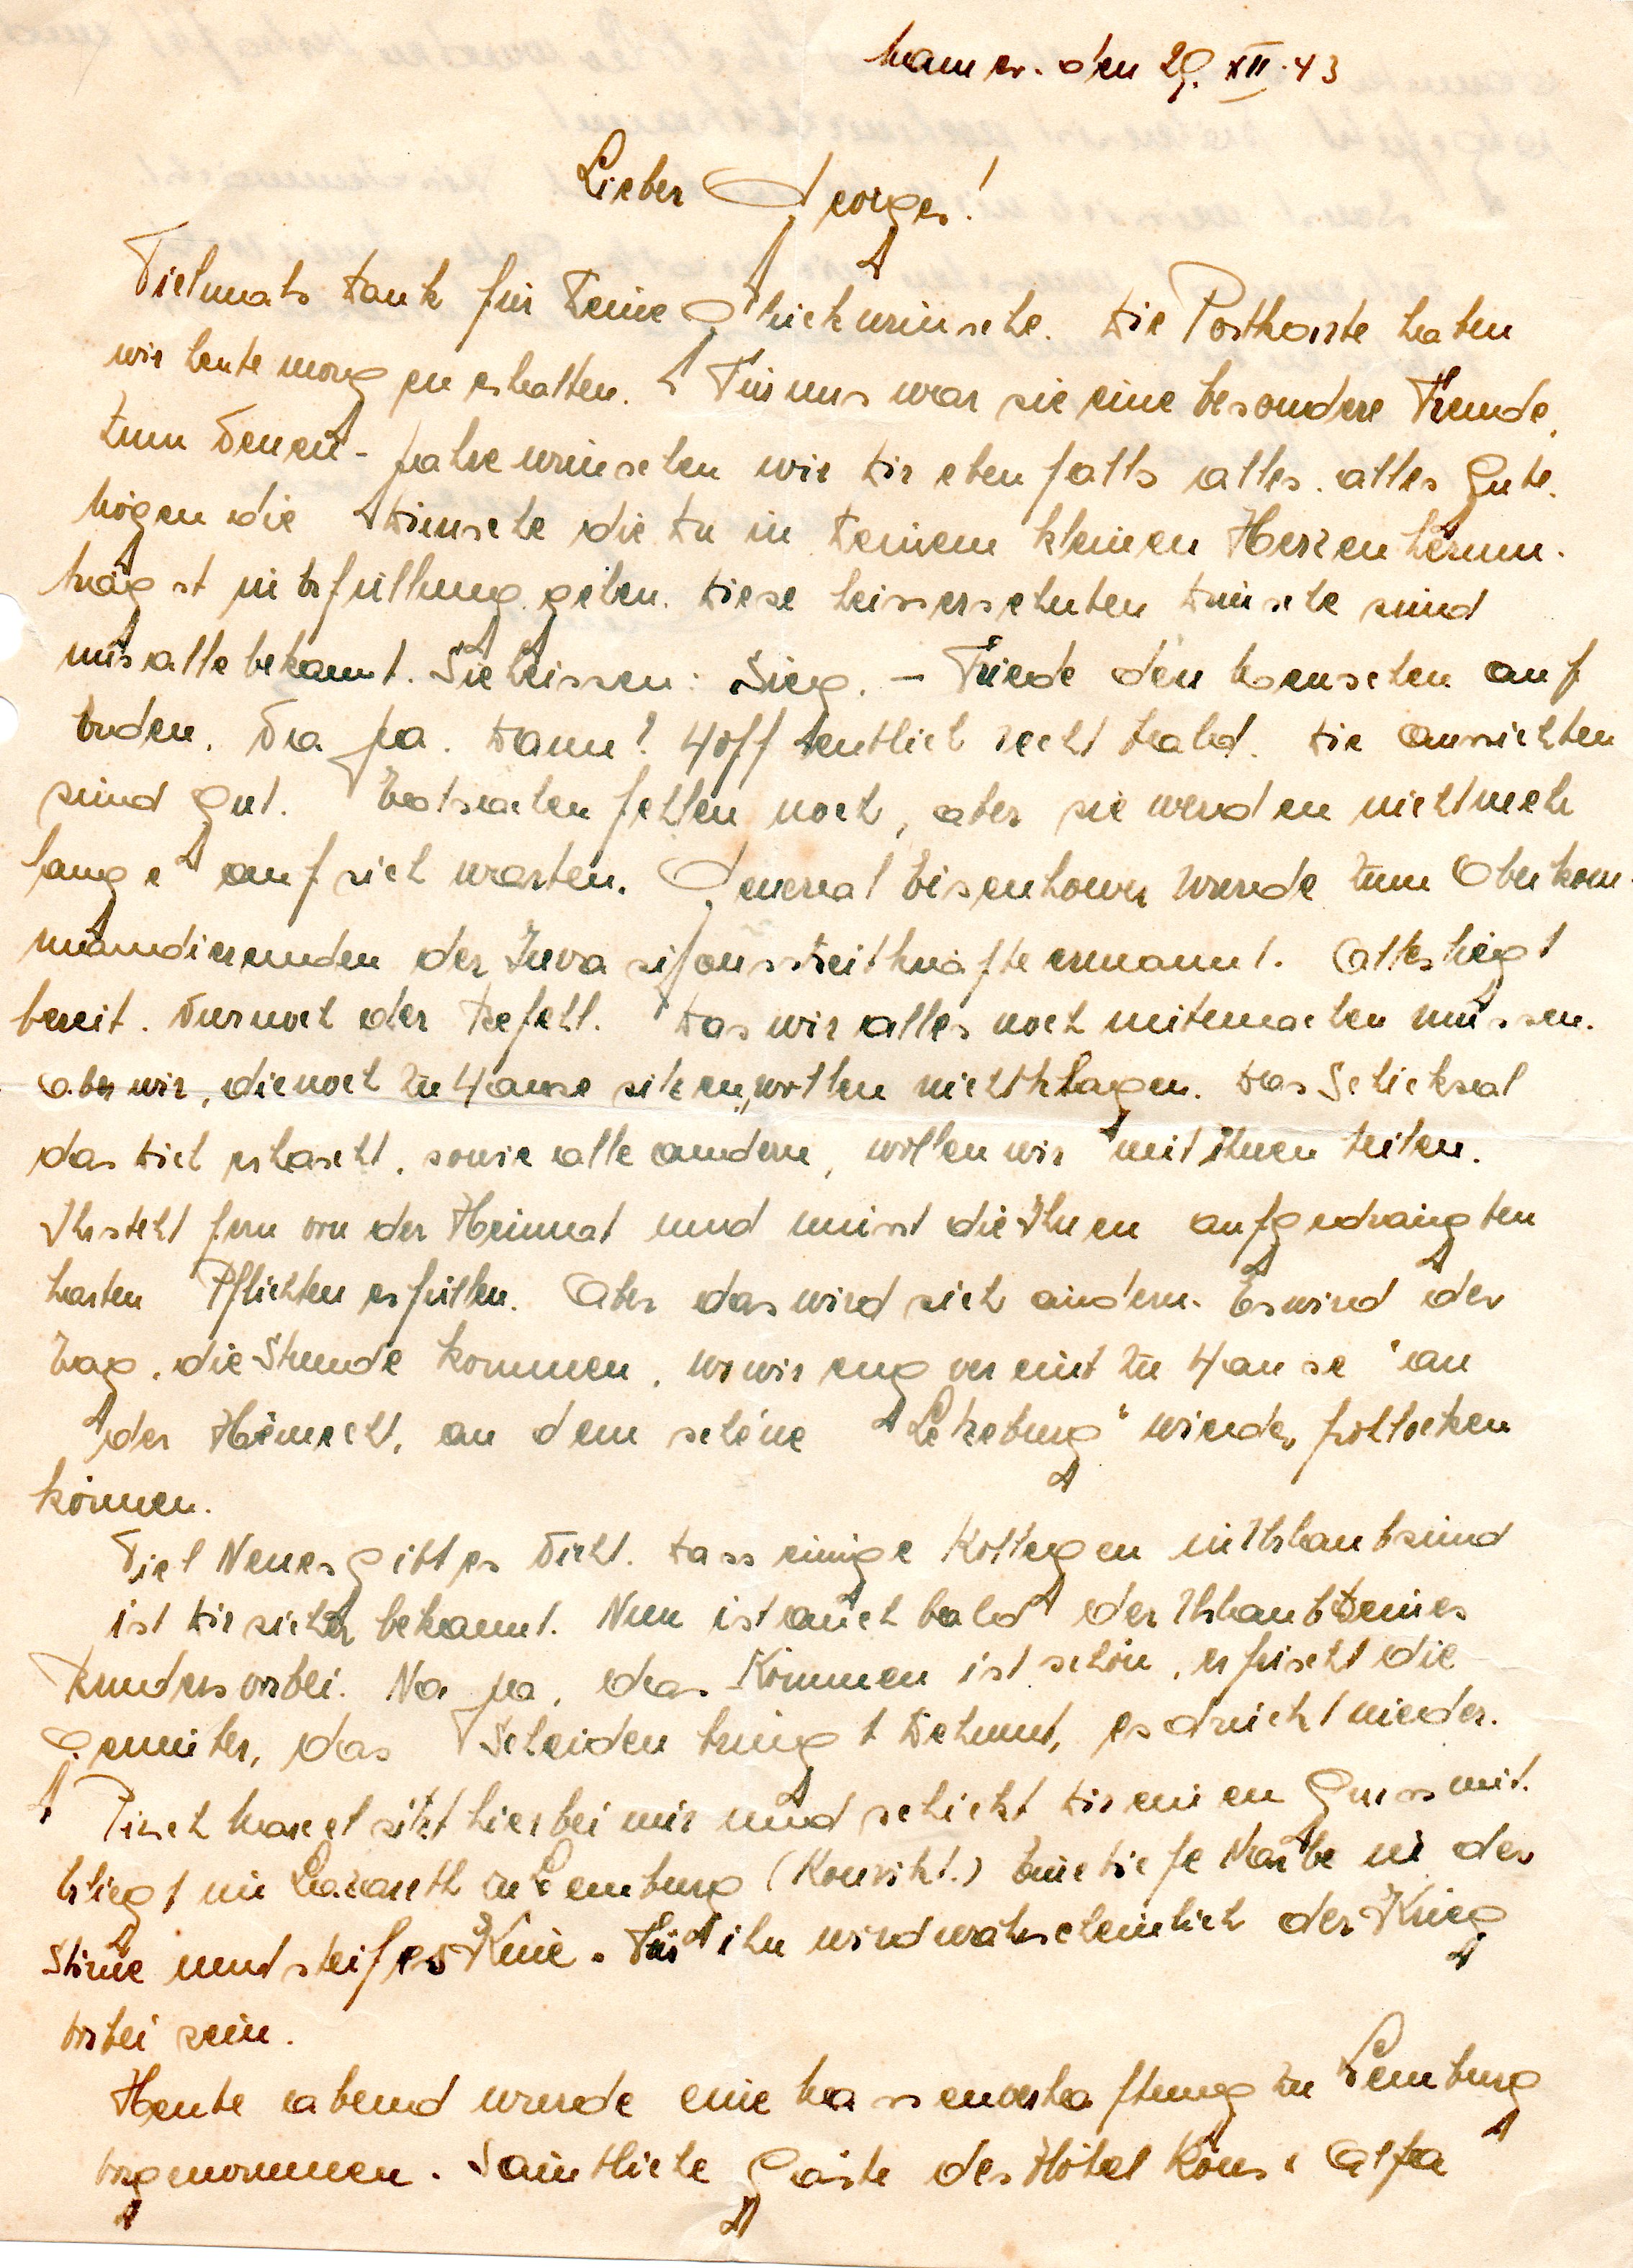 Mamer. den 29. XII. 43
Lieber Georges!
Vielmals Dank für Deine Glückwünsche. Die Postkarte haben
wir heute morgen erhalten. Für uns war sie eine besondere Freude.
Zum Neuen-Jahre wünschen wir Dir ebenfalls alles. alles Gute.
Mögen die Wünsche die Du in Deinem kleinen Herzen herum-
trägst in Erfüllung gehen. Diese heissersehnten Wünsche sind
uns alle bekannt. Sie heissen: Sieg. – Friede den Menschen auf
Erden. Na ja. Wann? Hoffentlich recht bald. Die Aussichten
sind gut. Tatsachen fehlen noch, aber sie werden nicht meh
lange auf sich warten. General Eisenhower wurde zum Oberkom-
mandierenden der Invasionsstreitkräfte ernannt. Alles liegt
bereit. Nur noch der Befehl. Was wir alles noch mitmachen müssen.
Aber wir, die noch zu Hause sitzen, wollen nicht klagen. Das Schicksal
das Dich erhascht, sowie alle andern, wollen wir mit Ihnen teilen.
Ihr steht fern von der Heimat und müsst die Ihnen aufgedrängten
harten Pflichten erfüllen. Aber das wird sich ändern. Es wird der
Tag, die Stunde kommen, wo wir eng vereint zu Hause "an
der Hémecht, an dem schéne Letzeburg" wieder frohlocken
können.
Viel Neues gibt es nicht. Dass einige Kollegen in Urlaub sind
ist Dir sicher bekannt. Nun ist auch bald der Urlaub Deines
Bruders vorbei. Na ja, das Kommen ist schön, erfrischt die
Gemüter, das Scheiden bringt Wehmut, es drückt nieder.
Marcel sitzt hier bei mir und schickt Dir einen Gruss mit.
Er liegt im Lazareth zu Lemburg (Konvikt.) Eine tiefe Narbe in der
Stirne und steifes Knie. Für ihn wird wahrscheinlich der Krieg
vorbei sein.
Heute abend wurde eine Massenverhaftung zu Lemburg
vorgenommen. Sämtliche Gäste des Hôtel Kons & Alfa